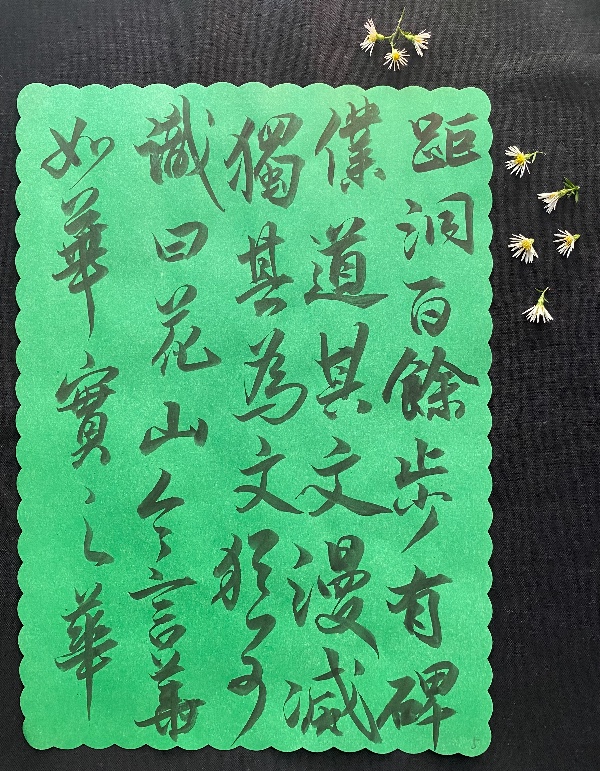 距洞百餘步有碑
僕道其文漫滅
獨其為文猶可
識曰花山今言華
如華實之華